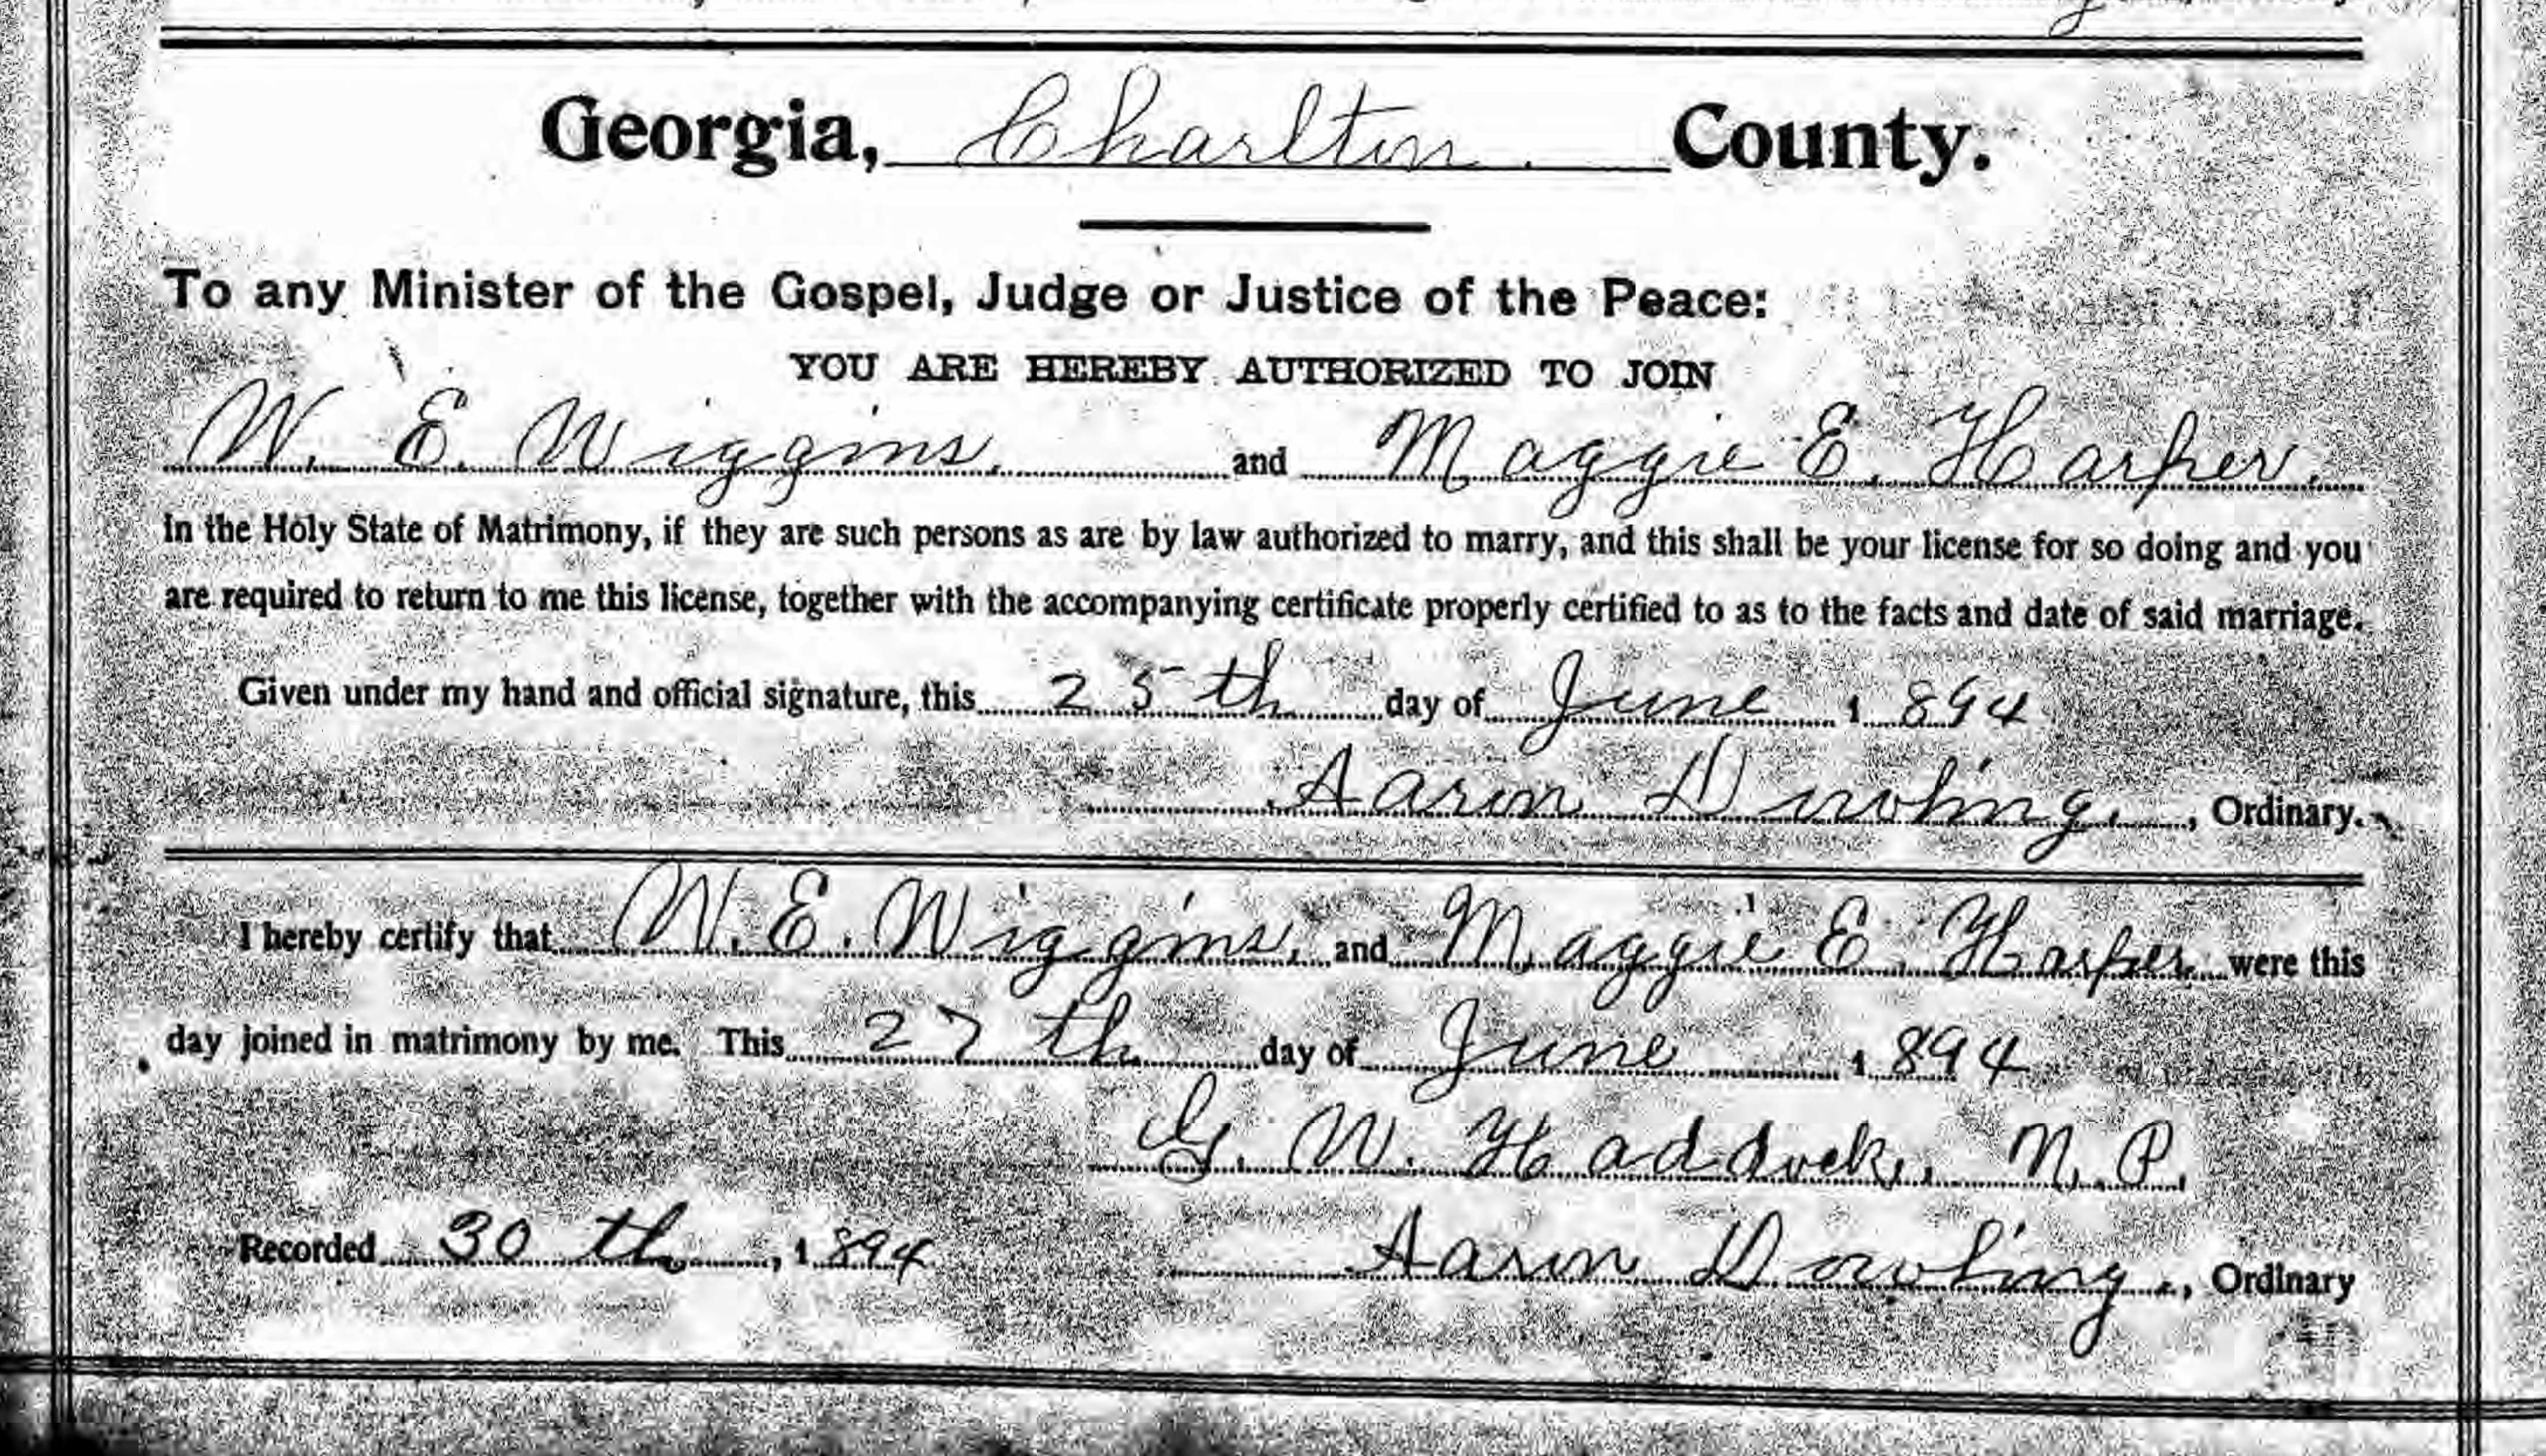 Georgia, Charlton. County.
To any Minister of the Gospel, Judge or Justice of the Peace:
YOU ARE HEREBY AUTHORIZED TO JOIN
W. E. Wiggins. and Maggie E. Harper.
In the Holy State of Matrimony, if they are such persons as are by law authorized to marry, and this shall be your license for so doing and you
are required to return to me this license, together with the accompanying certificate properly certified to as to the facts and date of said marriage.
Given under my hand and official signature, this 25th day of June 1894
Aaron Dowling., Ordinary.
I hereby certify that W. E. Wiggins. and Maggie E. Harper were this
day joined in matrimony by me. This 27th day of June 1894
G. W. Haddock, N. P.
Recorded 30th, 1894 Aaron Dowling., Ordinary